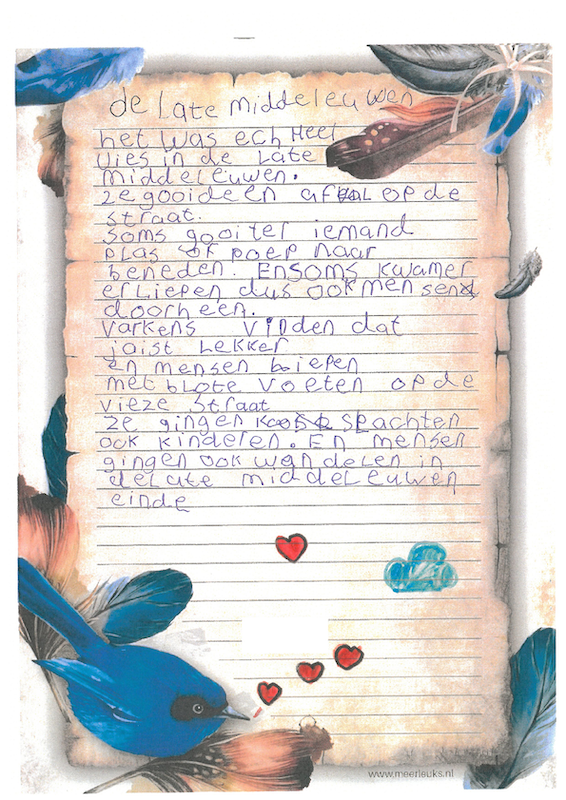 de Late middeleuwen
het was ech Heel
vies in de Late
middeleuwen.
ze gooideen afval op de
straat.
soms gooiter iemand
plas of poep naar
beneden. En soms kwamer
er Liepen dus ook mensen
doorheen.
varkens vinden dat
jaist Lekker
en mensen Liepen
met bLote voeten op de
vieze straat
ze gingen slachten
ook kinderen. En mensen
gingen ook wandelen in
de Late middeleuwen
einde
www.meerleuks.nl